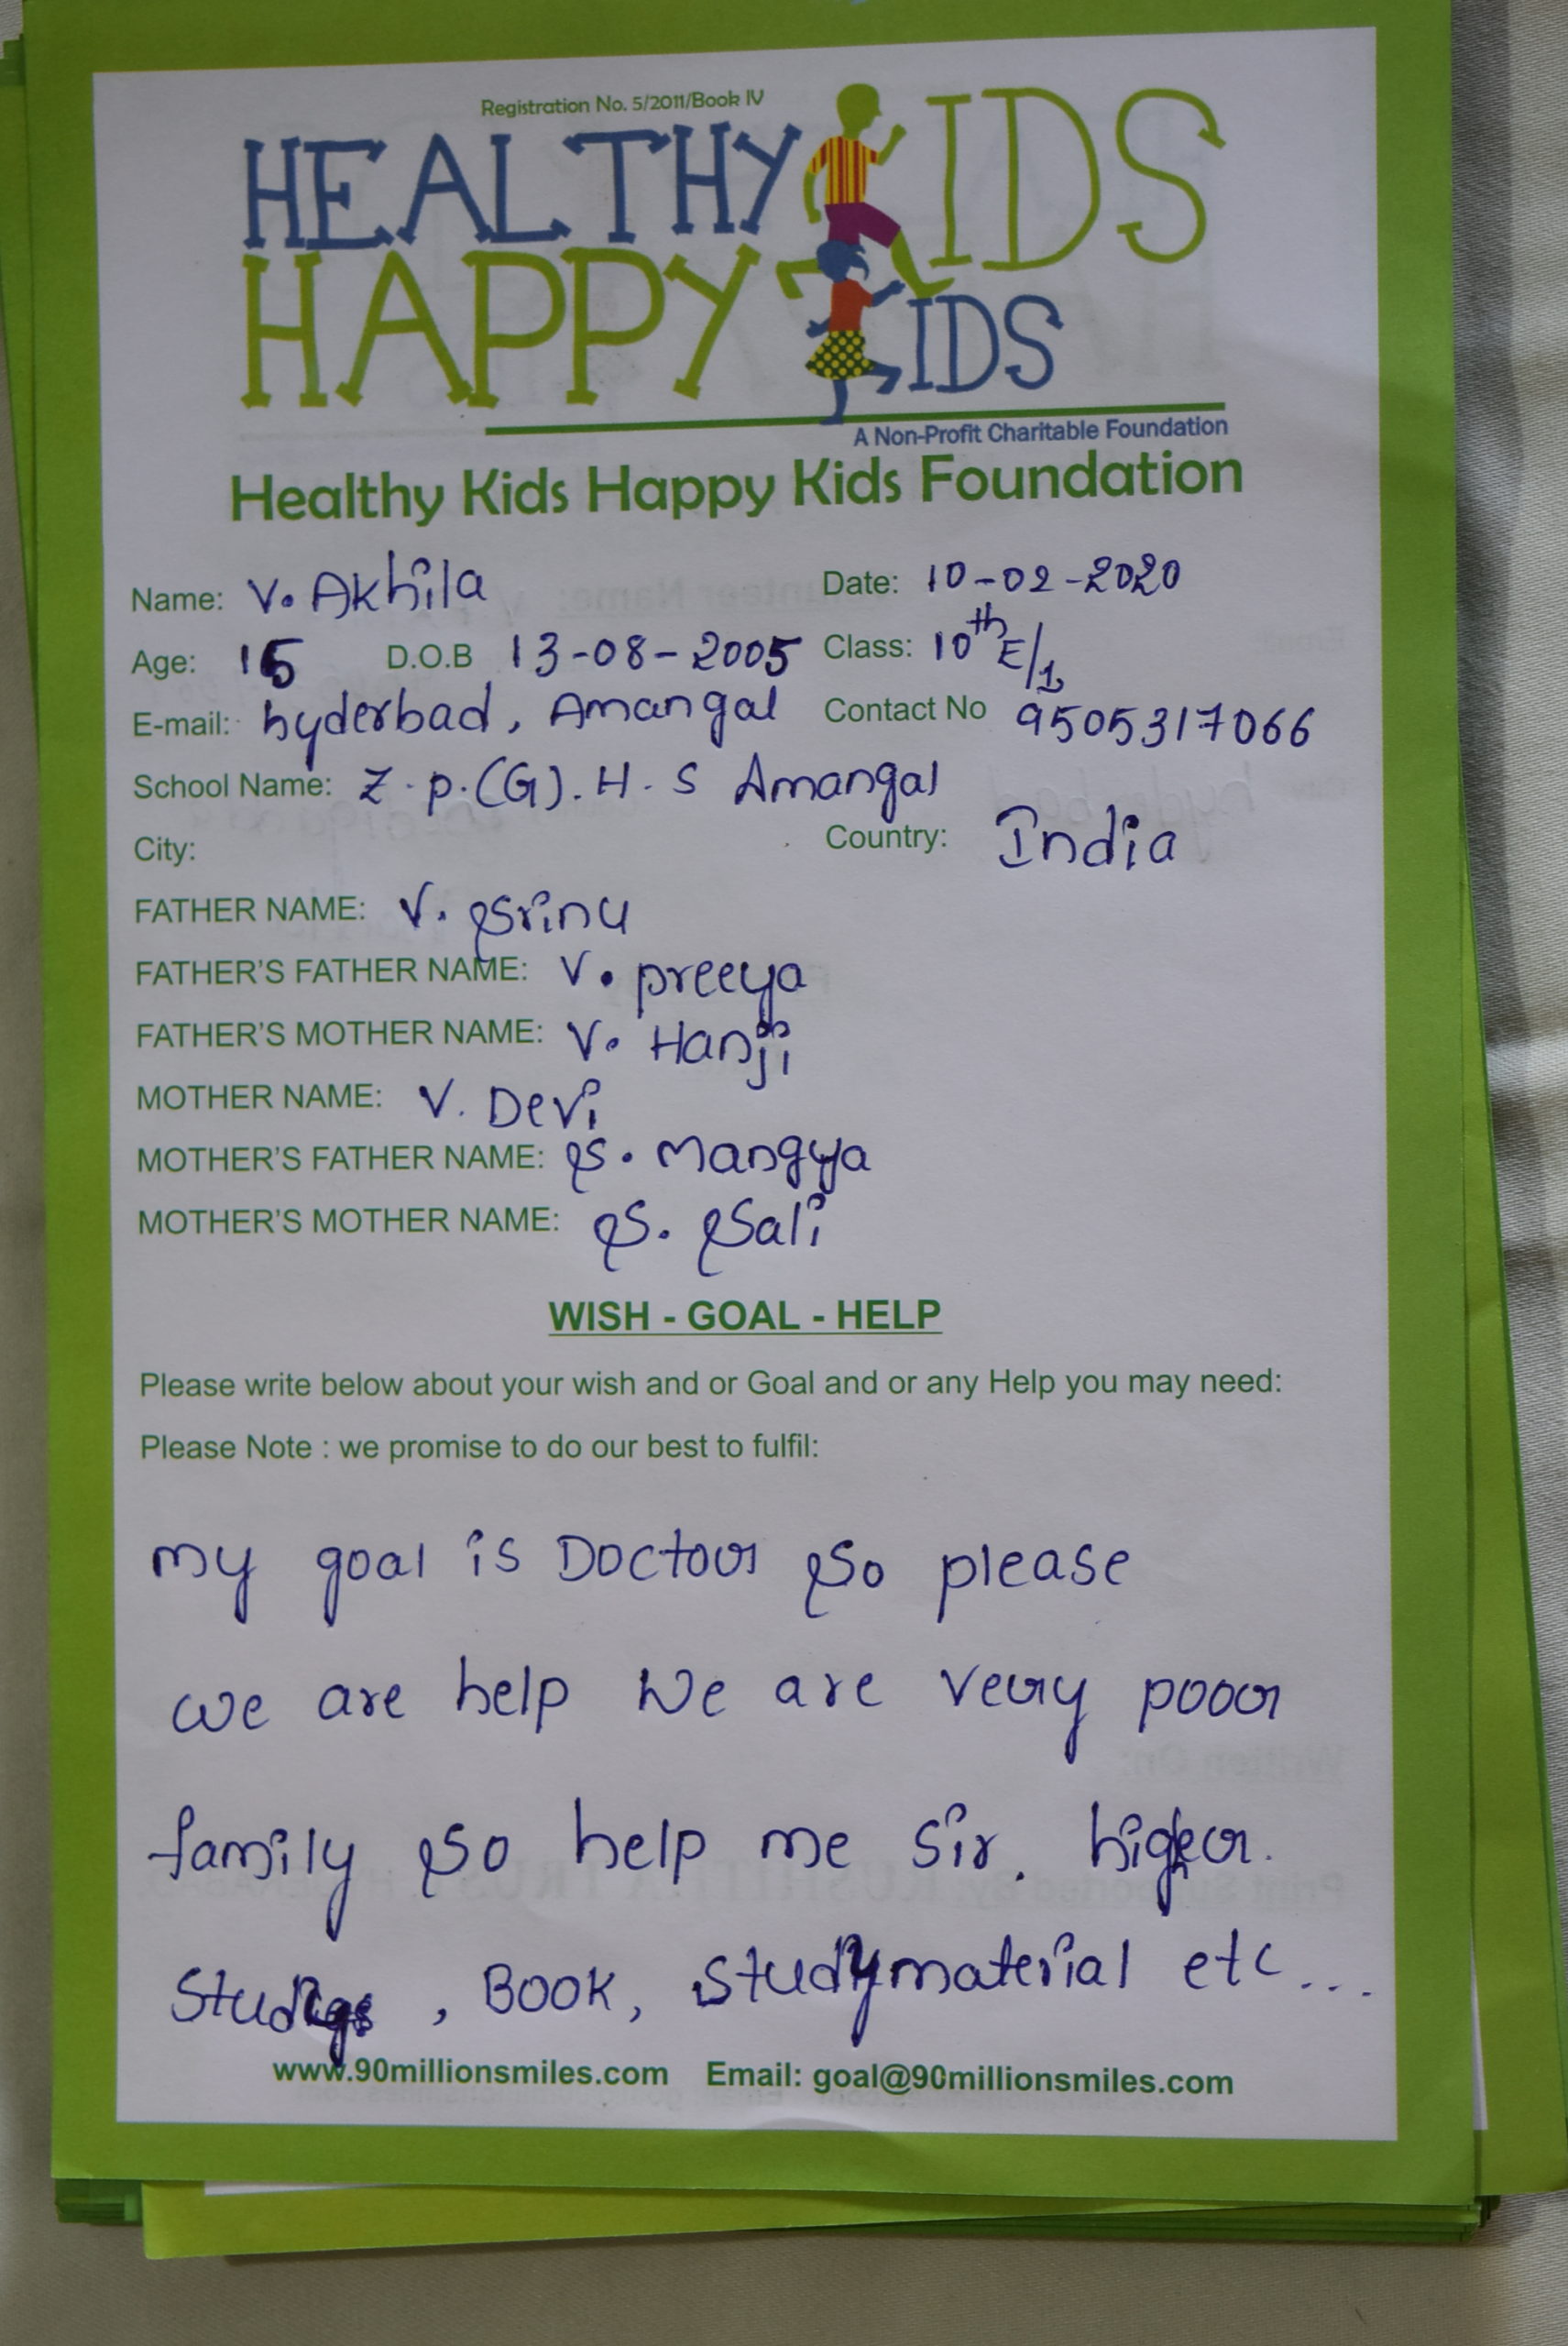 Registration No. 5/2011/Book IV
HEALTHY KIDS
HAPPY KIDS
A Non-Profit Charitable Foundation
Healthy Kids Happy Kids Foundation
Name: V. Akhila Date: 10-02-2020
Age: 15 D.O.B 13-08-2005 Class: 10th E/1
E-mail: hyderbad, Amangal Contact No 9505317066
School Name: Z.p.(G).H.S Amangal
City: Country: India
FATHER NAME: V. Srinu
FATHER'S FATHER NAME: V. preeya
FATHER'S MOTHER NAME: V. Hanji
MOTHER NAME: V. Devi
MOTHER'S FATHER NAME: S. Mangya
MOTHER'S MOTHER NAME: S. Sali
WISH - GOAL - HELP
Please write below about your wish and or Goal and or any Help you may need:
Please Note : we promise to do our best to fulfil:
my goal is Doctor So please
we are help We are very poor
family So help me Sir. higher.
, BOOK, Studymaterial etc...
www.90millionsmiles.com Email: goal@90millionsmiles.com